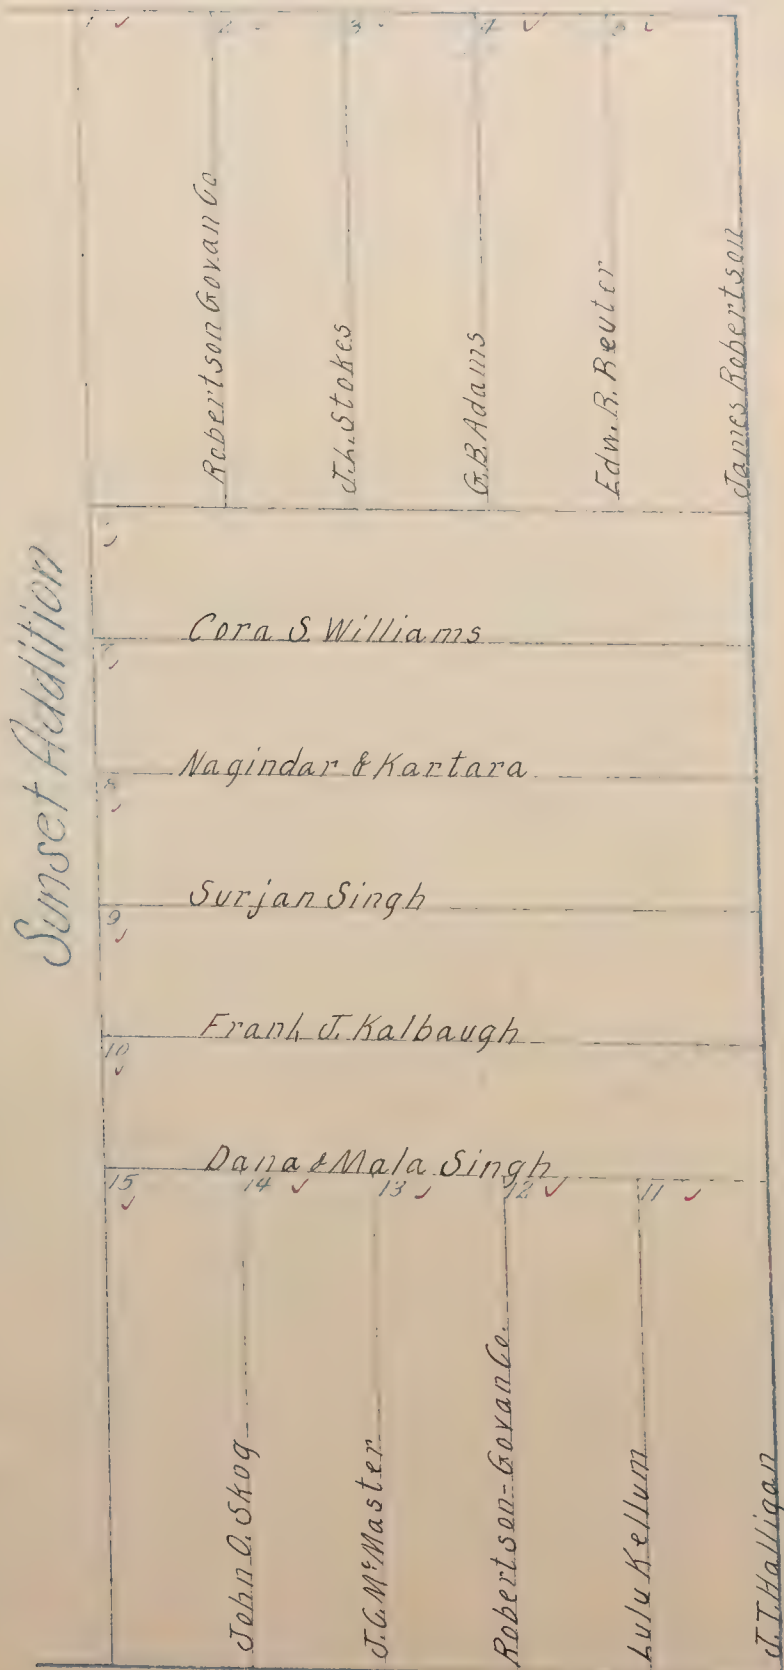 1 2 3 4 5
Robertson Govan Co
J.L. Stokes
G.B. Adams
Edw. R. Reuter
James Robertson
Sunset Addition
Cora S. Williams
7
Nagindar & Kartara
8
Surjan Singh
9
Frank J. Kalbaugh
10
Dana & Mala Singh
15 14 13 12 11
John O. Skog
J.C. McMaster
Robertson-Govan Co.
Lulu Kellum
J.T. Halligan